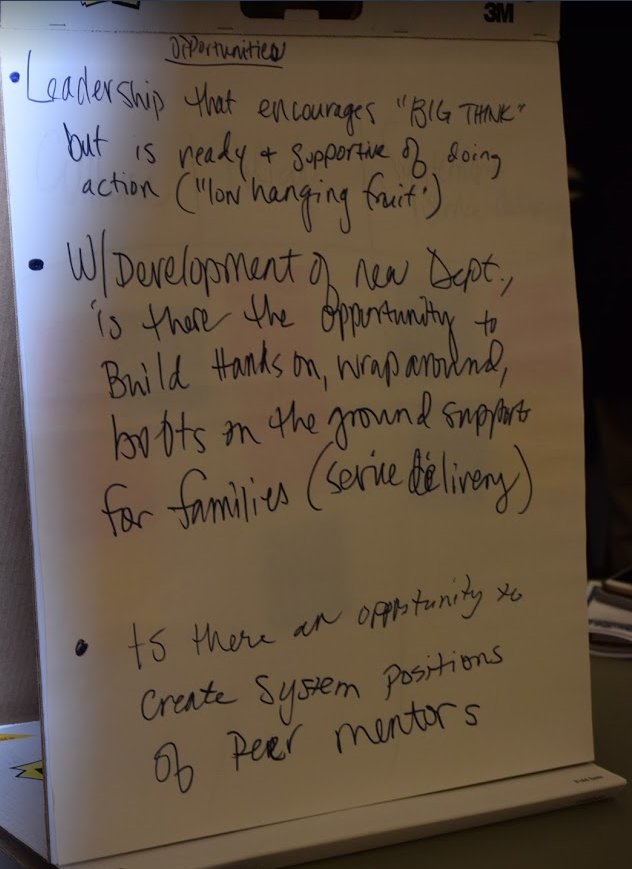 3M
Opportunities
• Leadership that encourages "BIG THINK"
but is ready + supportive of doing
action ("low hanging fruit")
• W/Development of new Dept.,
is there the opportunity to
Build Hands on, wraparound,
boots on the ground support
for families (service delivery)
• Is there an opportunity to
Create System Positions
of Peer mentors